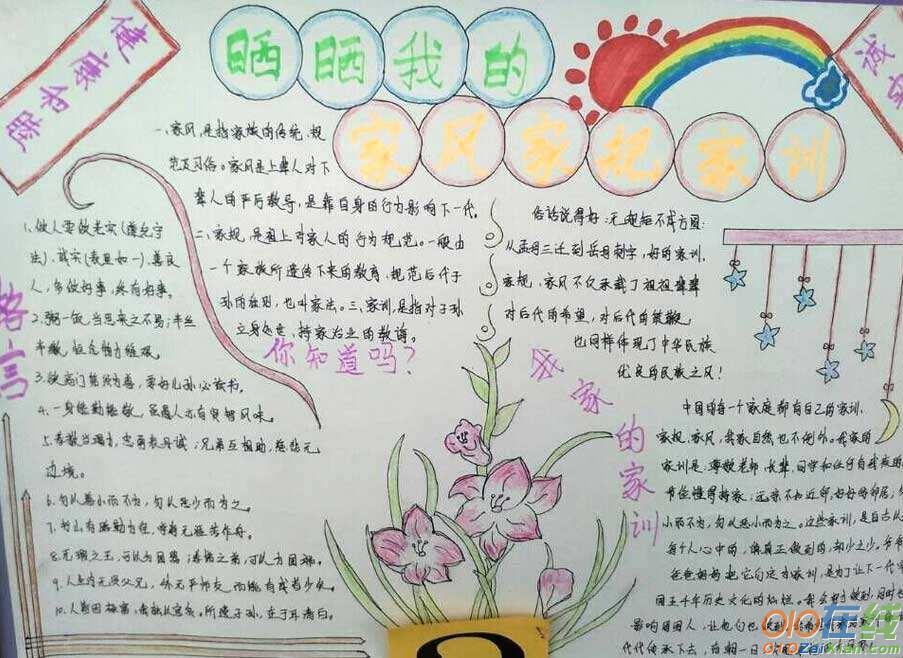 健康和谐
晒晒我的
家风家规家训
诚
一、家风,是指家族的传统、规
范及习俗。家风是上辈人对下
辈人的严厉教导,是靠自身的行为影响下一代。
二、家规,是祖上对家人的行为规范。一般由
一个家族所遗传下来的教育、规范后代子
孙的准则,也叫家法。三、家训,是指对子孙
立身处世、持家治业的教诲。
你知道吗?
格言
1.做人要做老实(遵纪守
法)、诚实(表里如一)、善良
人,多做好事,终有好事。
2.粥一饭,当思来之不易;半丝
半缕,恒念物力维艰。
3.欲高门第须为善,要好儿孙必读书。
4.一身
5.孝敬 兄弟互相助,慈悲无
边境。
6.勿以恶小而不为,勿以恶少而为之。
7.书山有路勤为径,学海无涯苦作舟。
8.无瑕之玉,可以为国器;孝悌之男,可以为
9.人生内无贤父兄,外无严师友,而能有成者少矣。
10.
俗话说得好:无规矩不成方圆:
从孟母三迁到岳母刺字,好的家训、
家规、家风不仅承载了祖祖辈辈
对后代的希望,对后代的鞭策,
也同样体现了中华民族
优良的民族之风!
我家的家训
中国的每一个家庭都有自己的家训、
家规、家风,我家自然也不例外。我家的
家训是:尊敬老师、长辈、同学和任何
节俭懂得持家;远亲不如近邻,好好待邻居;
小而不为,勿以恶小而为之。这些家训,是自古以
每个人心中的,但真正做到的,却少之少。爷爷
爸爸妈妈把它们定为家训,是为了让下一代
国五千年历史文化的灿烂。我会努力做到,同时也
影响周围人,让他们也做到
代代传承下去,有朝一日
OIO在线
OIOZaiXian.com